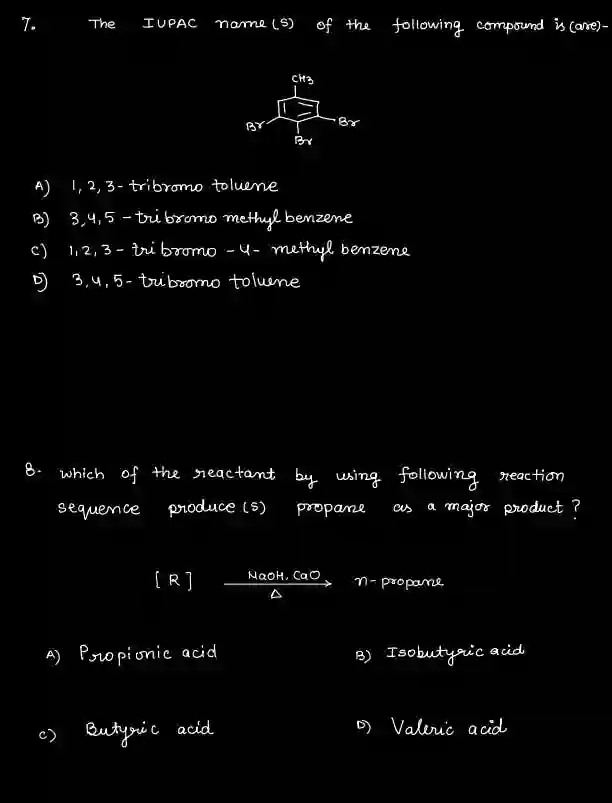 7. The IUPAC name(s) of the following compound is (are)-
CH3
Br
Br
Br
A) 1, 2, 3- tribromo toluene
B) 3,4,5 - tribromo methyl benzene
C) 1,2,3 - tribromo - 4 - methyl benzene
D) 3,4,5- tribromo toluene
8. which of the reactant by using following reaction
sequence produce(s) propane as a major product?
[R] NaOH, CaO n-propane
Δ
A) Propionic acid B) Isobutyric acid
C) Butyric acid D) Valeric acid